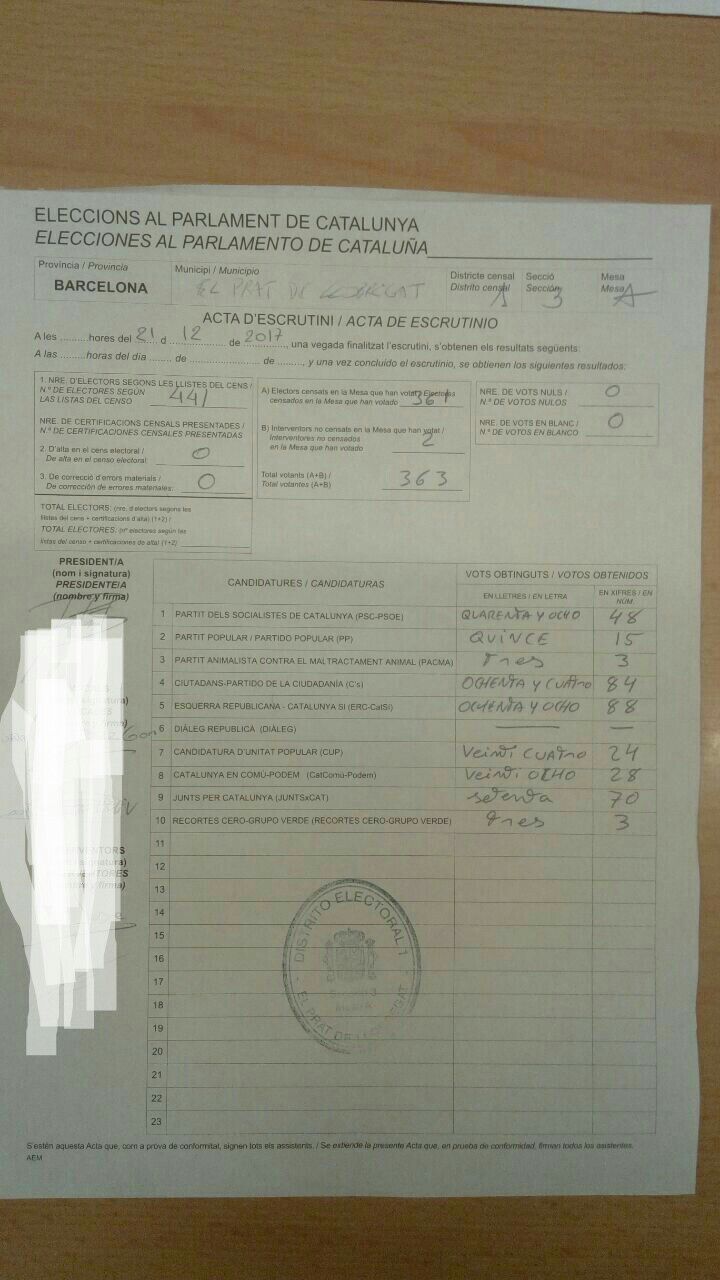 ELECCIONS AL PARLAMENT DE CATALUNYA
ELECCIONES AL PARLAMENTO DE CATALUÑA
Província / Provincia
BARCELONA
Municipi / Municipio
EL PRAT DE LLOBREGAT
Districte censal
Distrito censal 1
Secció
Sección 3
Mesa
Mesa A
ACTA D'ESCRUTINI / ACTA DE ESCRUTINIO
A les ..........hores del 21 d 12 de 2017, una vegada finalitzat l'escrutini, s'obtenen els resultats següents:
A las ..........horas del día ........ de ........................ de .........., y una vez concluido el escrutinio, se obtienen los siguientes resultados:
1. NRE. D'ELECTORS SEGONS LES LLISTES DEL CENS /
N.º DE ELECTORES SEGÚN
LAS LISTAS DEL CENSO 441
NRE. DE CERTIFICACIONS CENSALS PRESENTADES /
N.º DE CERTIFICACIONES CENSALES PRESENTADAS
2. D'alta en el cens electoral /
De alta en el censo electoral: 0
3. De correcció d'errors materials /
De corrección de errores materiales: 0
TOTAL ELECTORS: (nre. d'electors segons les
llistes del cens + certificacions d'alta) (1+2) /
TOTAL ELECTORES: (nº electores según las
listas del censo + certificaciones de alta) (1+2)
A) Electors censats en la Mesa que han votat / Electores
censados en la Mesa que han votado 361
B) Interventors no censats en la Mesa que han votat /
Interventores no censados
en la Mesa que han votado 2
Total votants (A+B) /
Total votantes (A+B) 363
NRE. DE VOTS NULS /
N.º DE VOTOS NULOS 0
NRE. DE VOTS EN BLANC /
N.º DE VOTOS EN BLANCO 0
PRESIDENT/A
(nom i signatura)
PRESIDENTE/A
(nombre y firma)
CANDIDATURES / CANDIDATURAS
VOTS OBTINGUTS / VOTOS OBTENIDOS
EN LLETRES / EN LETRA
EN XIFRES / EN NÚM.
1 PARTIT DELS SOCIALISTES DE CATALUNYA (PSC-PSOE) QUARENTA Y OCHO 48
2 PARTIT POPULAR / PARTIDO POPULAR (PP) QUINCE 15
3 PARTIT ANIMALISTA CONTRA EL MALTRACTAMENT ANIMAL (PACMA) tres 3
4 CIUTADANS-PARTIDO DE LA CIUDADANÍA (C's) OCHENTA Y CUATRO 84
5 ESQUERRA REPUBLICANA - CATALUNYA SÍ (ERC-CatSí) OCHENTA Y OCHO 88
6 DIÀLEG REPUBLICÀ (DIÀLEG) — —
7 CANDIDATURA D'UNITAT POPULAR (CUP) Veinti CUATRO 24
8 CATALUNYA EN COMÚ-PODEM (CatComú-Podem) Veinti OCHO 28
9 JUNTS PER CATALUNYA (JUNTSxCAT) setenta 70
10 RECORTES CERO-GRUPO VERDE (RECORTES CERO-GRUPO VERDE) tres 3
11
12
13
14
15
16
17
18
19
20
21
22
23
DISTRITO ELECTORAL 1
EL PRAT DE LLOBREGAT
S'estén aquesta Acta que, com a prova de conformitat, signen tots els assistents. / Se extiende la presente Acta que, en prueba de conformidad, firman todos los asistentes.
AEM